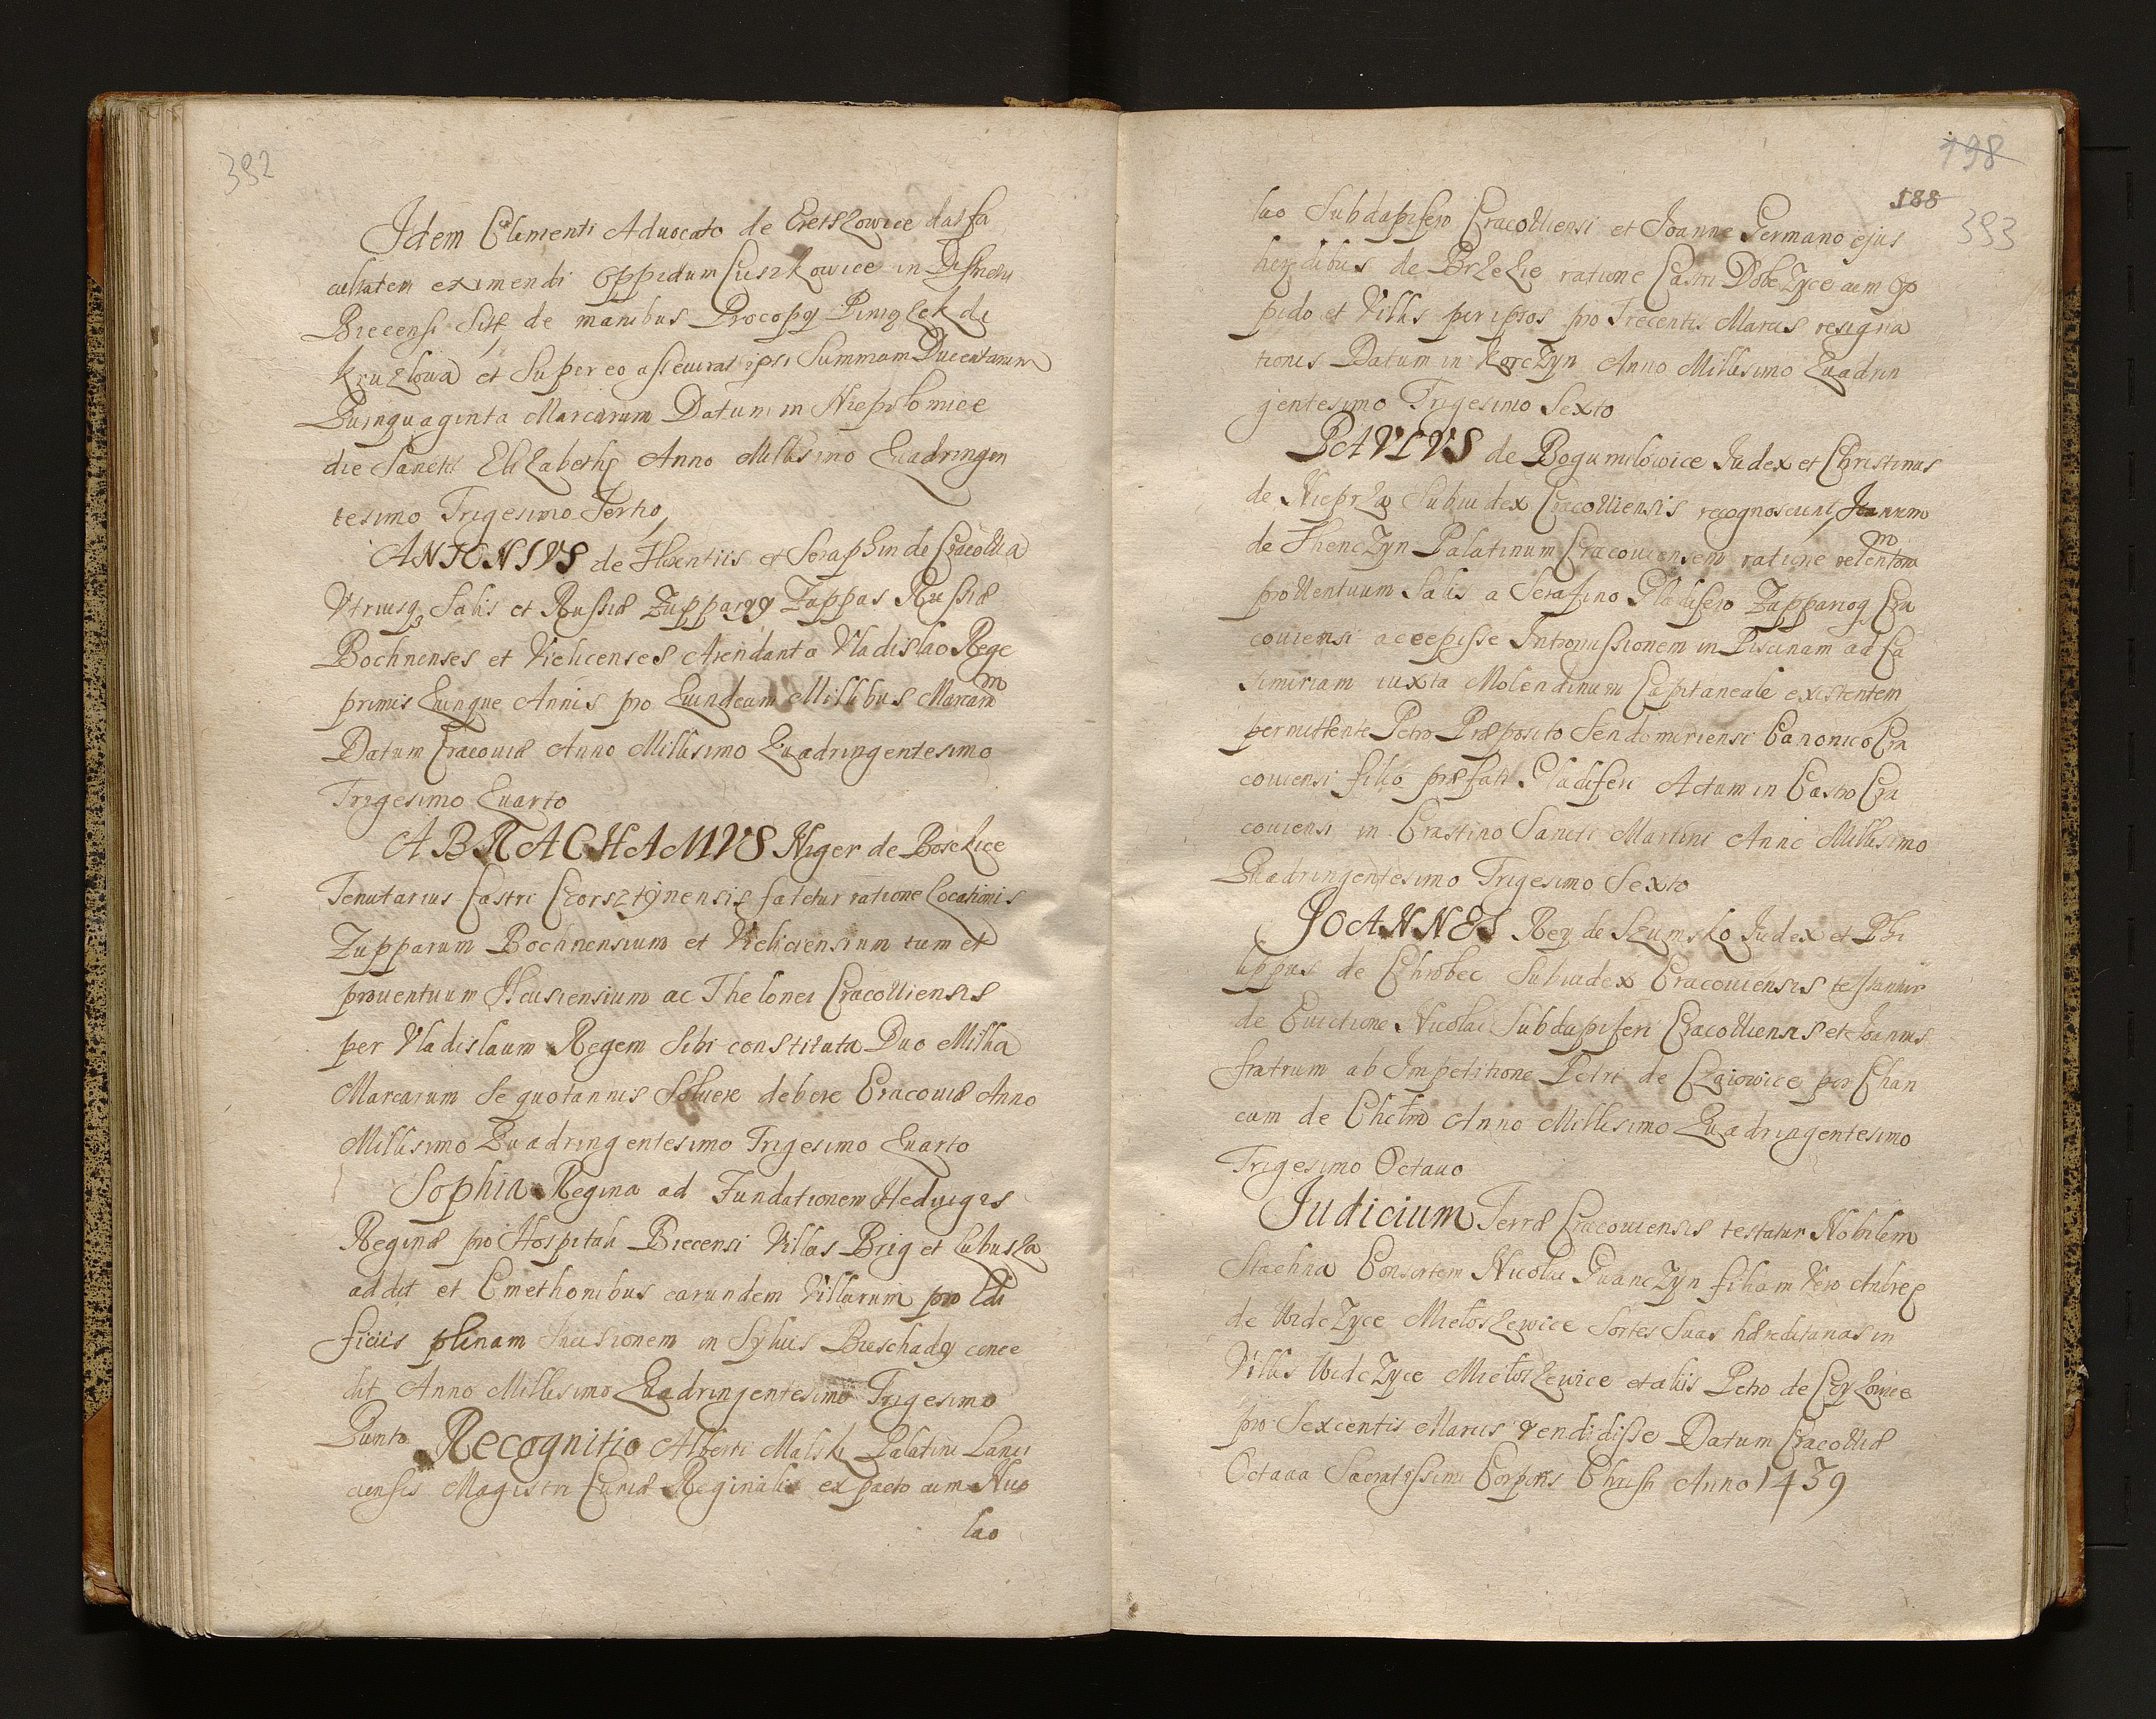 392
Idem Clementi Aduocato de dat fa
cultatem eximendi Oppidum Ciszkowice in Districtu
Biecensi Sit de manibus Procopy Pinigzek de
Kruzlowa et Super eo asseuirat ipsi Summam Ducentarum
Quinquaginta Marcarum Datum in Niepolomice
die Sanctæ Elizabethę Anno Millesimo Quadringen
tesimo Trigesimo Tertio
ANTONIVS de et Seraphin de Cracouia
Vtriusq3 Salis et Russiæ Zuppary Zuppas Russiæ
Bochnenses et Vielicenses Arendant a Vladislao Rege
primis Quinque Annis pro Quindeam Millibus Marcarm
Datum Cracouiæ Anno Millesimo Quadringentesimo
Trigesimo Quarto
ABRACHAMVS Niger de Boschce
Tenutarius Castri Czorsztÿnensis fatetur ratione Locationis
Zupparum Bochnensium et Vieliciensium tum et
prouentuum Ilcusiensium ac Thelonei Cracouiensis
per Vladislaum Regem Sibi constituta Duo Millia
Marcarum Se quotannis Soluere debere Cracouiæ Anno
Millesimo Quadringentesimo Trigesimo Quarto
Sophia Regina ad Fundationem Heduigis
Reginæ pro Hospitali Biecensi Villas Brig et Lubusza
addit et Cmethonibus earundem Villarum pro Edi
ficiis plenam Incisionem in Syluis Bieschady conce
dit Anno Millesimo Quadringentesimo Trigesimo
Quinto Recognitio Alberti Malski Palatini Lanci
ciensis Magistri Curiæ Reginalis ex pacto cum Nico
lao
198
188
393
lao Subdapifero Cracouiensi et Joanne Germano ejus
heredibus de Brzezie ratione Castri Dobczyce cum Op
pido et Villis per ipsos pro Trecentis Marcis resigna
tionis Datum in Korczyn Anno Millesimo Quadrin
gentesimo Trigesimo Sexto
PAVLVS de Bogumilowice Judex et Christinus
de Nieprza Subiudex Cracouiensis recognoscunt Joannem
de Thenczyn Palatinum Cracouiensem ratione retentorum
prouentuum Salis a Serafino Gladifero Zupparioq Cra
couiensi accepisse Intromissionem in Piscinam ad Ca
simiriam iuxta Molendinum Capitaneale existentem
permittente Petro Præposito Sendomiriensi Canonico Cra
couiensi filio præfati Gladiferi Actum in Castro Cra
couiensi in Crastino Sancti Martini Anno Millesimo
Quadringentesimo Trigesimo Sexto
JOANNES Rey de Szumsko Judex et Phi
lippus de Chrobec Subiudex Cracouiensis testantur
de Euictione Nicolai Subdapiferi Cracouiensis et Joannis
fratrum ab Impetitione Petri de Czaiowice per Chan
cam de Chelm Anno Millesimo Quadringentesimo
Trigesimo Octauo
Judicium Terræ Cracouiensis testatur Nobilem
Stachna Consortem Nicolai Guanczyn filiam Vero Andreę
de Mietoszewice Sortes Suas hæreditarias in
Villis Mietoszewice et aliis Petro de Czyzowice
pro Sexcentis Marcis vendidisse Datum Cracouiæ
Octaua Sacratissimi Corporis Christi Anno 1439